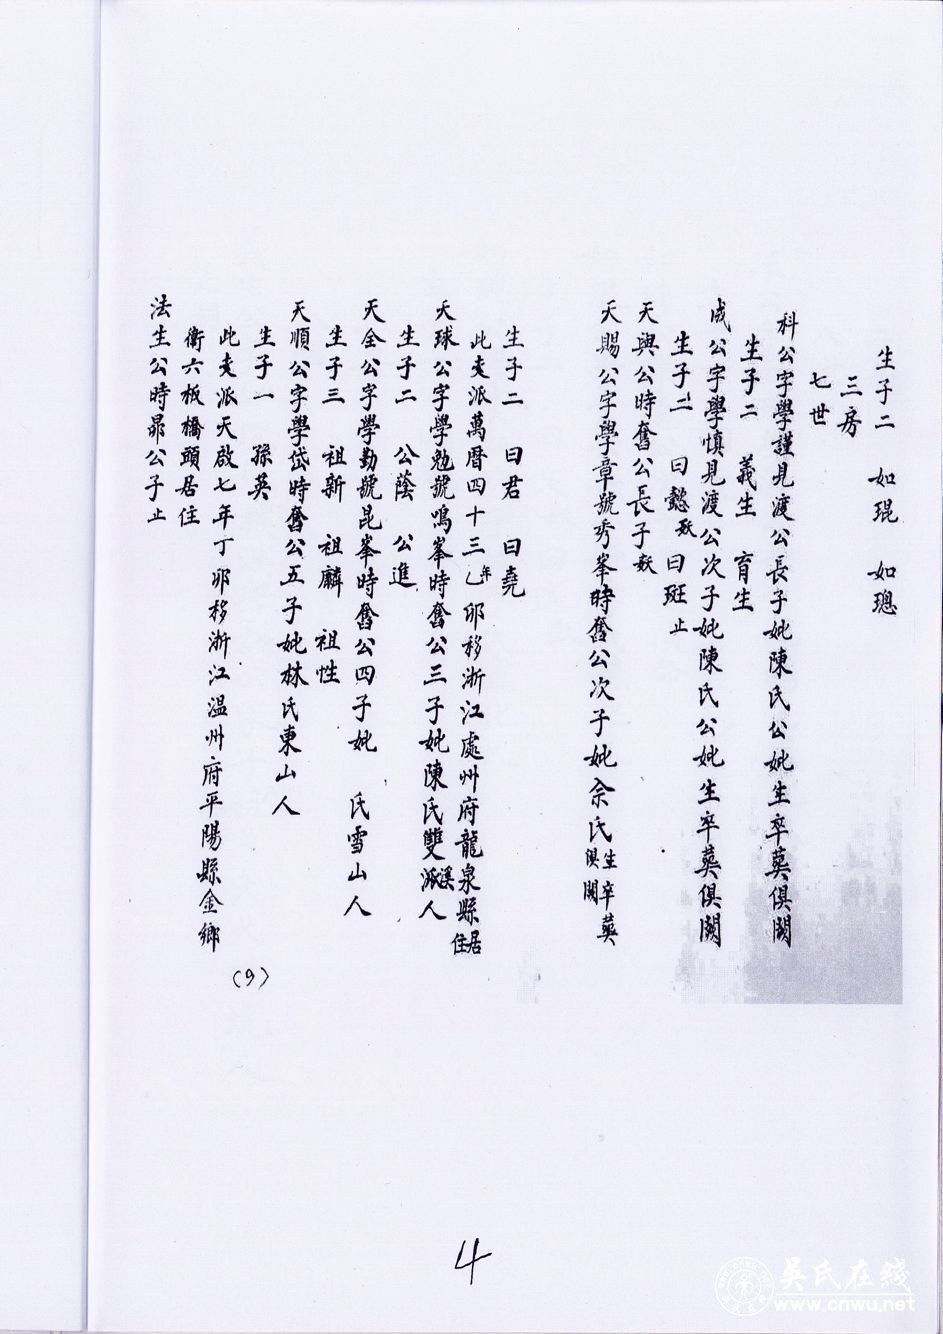 生子二 如琨 如璁
三房
七世
科公字學謹見渡公長子妣陳氏公妣生卒葬俱闕
生子二 義生 育生
成公字學慎見渡公次子妣陳氏公妣生卒葬俱闕
生子二 曰懿殀曰珽止
天與公時奮公長子殀
天賜公字學章號秀峯時奮公次子妣佘氏生卒葬俱闕
生子二 曰君 曰堯
此支派萬曆四十三年乙卯移浙江處州府龍泉縣居住
天球公字學勉號鳴峯時奮公三子妣陳氏雙溪派人
生子二 公蔭 公進
天全公字學勤號昆峯時奮公四子妣 氏雪山人
生子三 祖新 祖麟 祖性
天順公字學岱時奮公五子妣林氏東山人
生子一 孫英
此支派天啟七年丁卯移浙江温州府平陽縣金鄉
衛六板橋頭居住
法生公時昴公子止
(9)
4
吴氏在线
www.cnwu.net